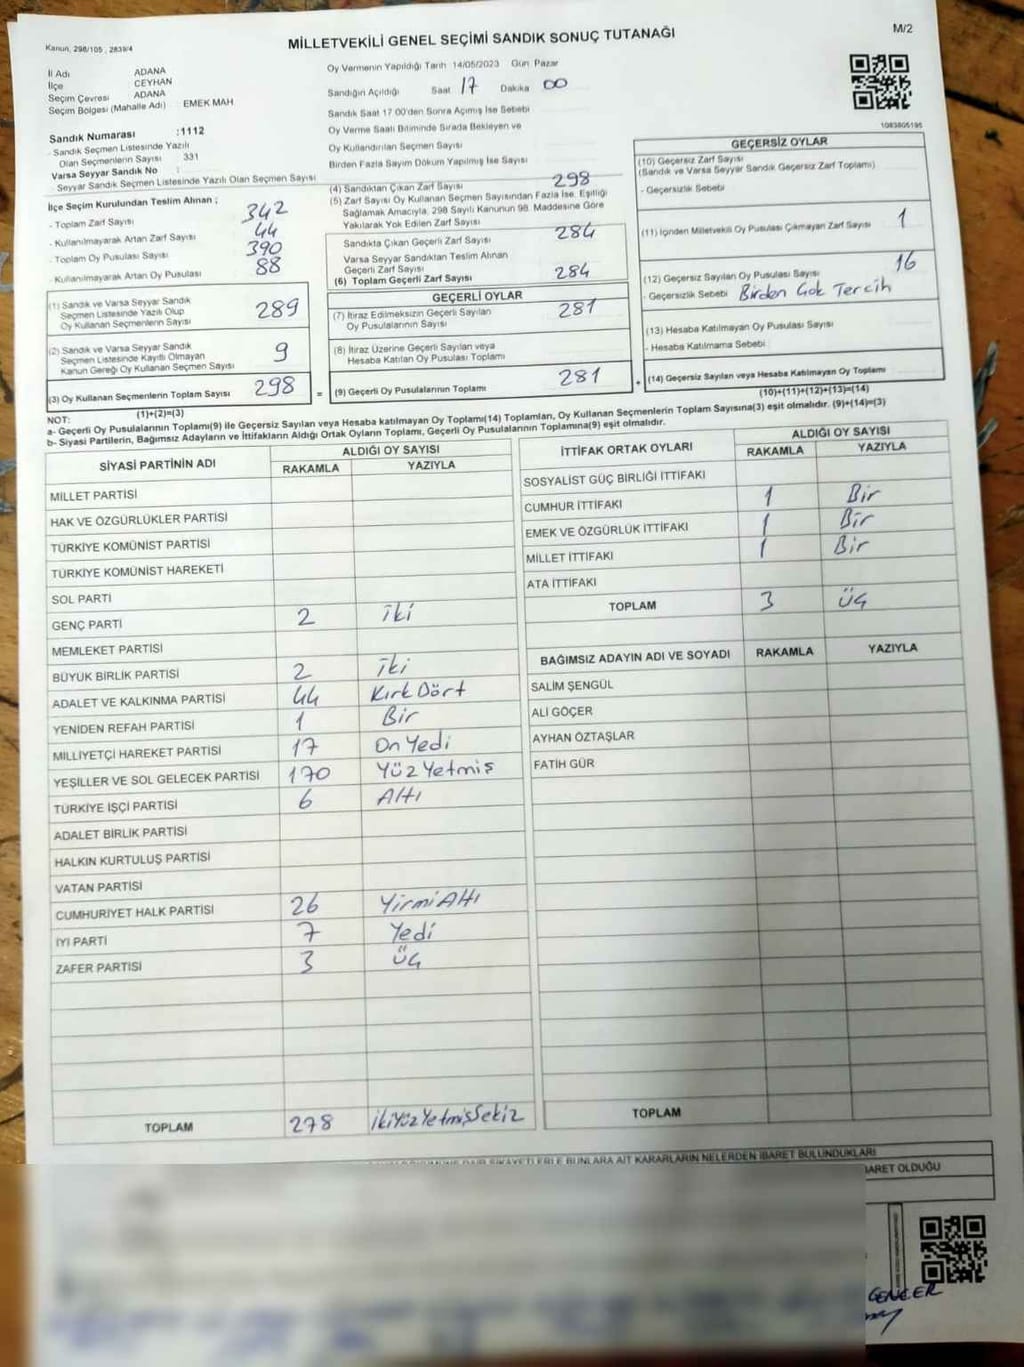 Kanun, 298/105 , 2839/4
MİLLETVEKİLİ GENEL SEÇİMİ SANDIK SONUÇ TUTANAĞI
M/2
İl Adı ADANA
İlçe CEYHAN
Seçim Çevresi ADANA
Seçim Bölgesi (Mahalle Adı) : EMEK MAH
Sandık Numarası : 1112
- Sandık Seçmen Listesinde Yazılı
Olan Seçmenlerin Sayısı : 331
Varsa Seyyar Sandık No :
- Seyyar Sandık Seçmen Listesinde Yazılı Olan Seçmen Sayısı
Oy Vermenin Yapıldığı Tarih 14/05/2023 Gün Pazar
Sandığın Açıldığı Saat 17 Dakika 00
Sandık Saat 17 00'den Sonra Açımış İse Sebebi
Oy Verme Saati Bitiminde Sırada Bekleyen ve
Oy Kullandırılan Seçmen Sayısı
Birden Fazla Sayım Döküm Yapılmış İse Sayısı
1083805195
İlçe Seçim Kurulundan Teslim Alınan ;
- Toplam Zarf Sayısı 342
- Kullanılmayarak Artan Zarf Sayısı 44
- Toplam Oy Pusulası Sayısı 390
- Kullanılmayarak Artan Oy Pusulası 88
(1) Sandık ve Varsa Seyyar Sandık
Seçmen Listesinde Yazılı Olup
Oy Kullanan Seçmenlerin Sayısı 289
(2) Sandık ve Varsa Seyyar Sandık
Seçmen Listesinde Kayıtlı Olmayan
Kanun Gereği Oy Kullanan Seçmen Sayısı 9
(3) Oy Kullanan Seçmenlerin Toplam Sayısı 298 =
(1)+(2)=(3)
(4) Sandıktan Çıkan Zarf Sayısı 298
(5) Zarf Sayısı Oy Kullanan Seçmen Sayısından Fazla İse, Eşitliği
Sağlamak Amacıyla, 298 Sayılı Kanunun 98. Maddesine Göre
Yakılarak Yok Edilen Zarf Sayısı
Sandıkta Çıkan Geçerli Zarf Sayısı 284
Varsa Seyyar Sandıktan Teslim Alınan
Geçerli Zarf Sayısı
(6) Toplam Geçerli Zarf Sayısı 284
GEÇERLİ OYLAR
(7) İtiraz Edilmeksizin Geçerli Sayılan
Oy Pusulalarının Sayısı 281
(8) İtiraz Üzerine Geçerli Sayılan veya
Hesaba Katılan Oy Pusulası Toplamı
(9) Geçerli Oy Pusulalarının Toplamı 281 +
GEÇERSİZ OYLAR
(10) Geçersiz Zarf Sayısı
(Sandık ve Varsa Seyyar Sandık Geçersiz Zarf Toplamı)
- Geçersizlik Sebebi
(11) İçinden Milletvekili Oy Pusulası Çıkmayan Zarf Sayısı 1
(12) Geçersiz Sayılan Oy Pusulası Sayısı 16
- Geçersizlik Sebebi Birden Çok Tercih
(13) Hesaba Katılmayan Oy Pusulası Sayısı
- Hesaba Katılmama Sebebi
(14) Geçersiz Sayılan veya Hesaba Katılmayan Oy Toplamı
(10)+(11)+(12)+(13)=(14)
NOT:
a- Geçerli Oy Pusulalarının Toplamı(9) ile Geçersiz Sayılan veya Hesaba katılmayan Oy Toplamı(14) Toplamları, Oy Kullanan Seçmenlerin Toplam Sayısına(3) eşit olmalıdır. (9)+(14)=(3)
b- Siyasi Partilerin, Bağımsız Adayların ve İttifakların Aldığı Ortak Oyların Toplamı, Geçerli Oy Pusulalarının Toplamına(9) eşit olmalıdır.
SİYASİ PARTİNİN ADI ALDIĞI OY SAYISI
RAKAMLA YAZIYLA
MİLLET PARTİSİ
HAK VE ÖZGÜRLÜKLER PARTİSİ
TÜRKİYE KOMÜNİST PARTİSİ
TÜRKİYE KOMÜNİST HAREKETİ
SOL PARTİ
GENÇ PARTİ 2 iki
MEMLEKET PARTİSİ
BÜYÜK BİRLİK PARTİSİ 2 iki
ADALET VE KALKINMA PARTİSİ 44 Kırk Dört
YENİDEN REFAH PARTİSİ 1 Bir
MİLLİYETÇİ HAREKET PARTİSİ 17 On Yedi
YEŞİLLER VE SOL GELECEK PARTİSİ 170 Yüz Yetmiş
TÜRKİYE İŞÇİ PARTİSİ 6 Altı
ADALET BİRLİK PARTİSİ
HALKIN KURTULUŞ PARTİSİ
VATAN PARTİSİ
CUMHURİYET HALK PARTİSİ 26 Yirmi Altı
İYİ PARTİ 7 Yedi
ZAFER PARTİSİ 3 Üç
TOPLAM 278 İkiYüzYetmişSekiz
İTTİFAK ORTAK OYLARI ALDIĞI OY SAYISI
RAKAMLA YAZIYLA
SOSYALİST GÜÇ BİRLİĞİ İTTİFAKI
CUMHUR İTTİFAKI 1 Bir
EMEK VE ÖZGÜRLÜK İTTİFAKI 1 Bir
MİLLET İTTİFAKI 1 Bir
ATA İTTİFAKI
TOPLAM 3 Üç
BAĞIMSIZ ADAYIN ADI VE SOYADI RAKAMLA YAZIYLA
SALİM ŞENGÜL
ALİ GÖÇER
AYHAN ÖZTAŞLAR
FATİH GÜR
TOPLAM
BUNLARA AİT KARARLARIN NELERDEN İBARET BULUNDUKLARI
OLDUĞU
GENCER